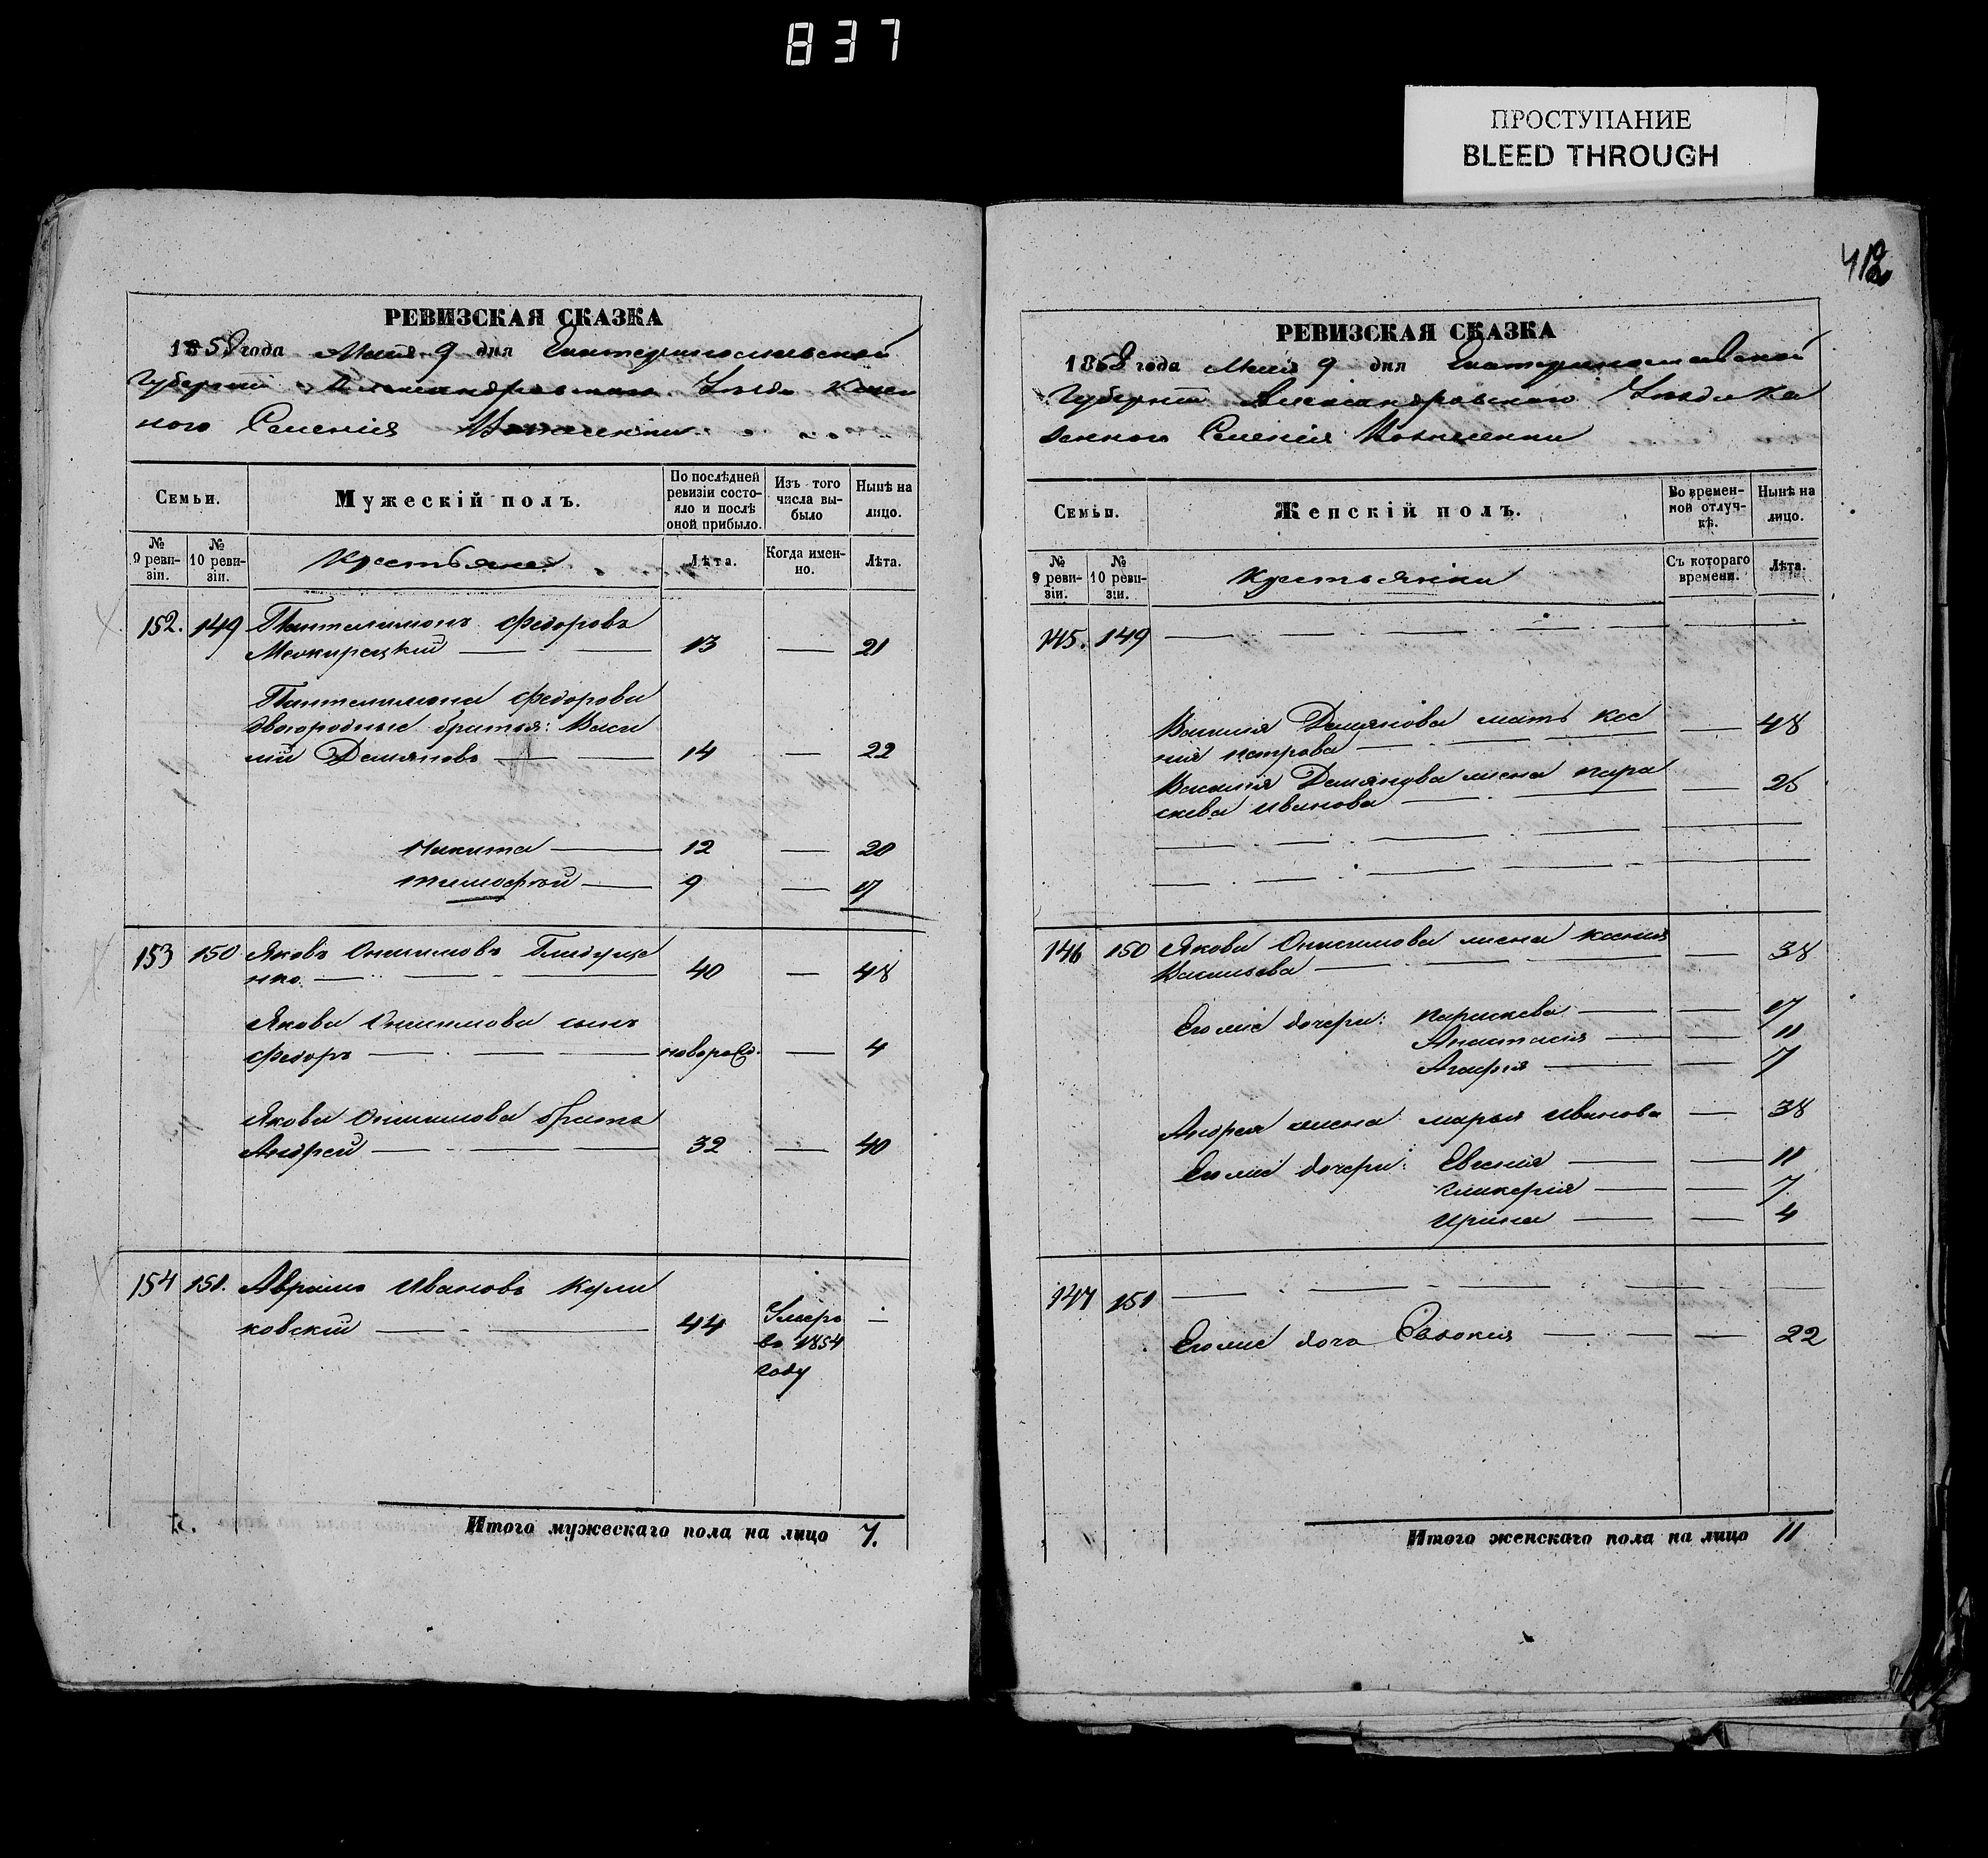 837
ПРОСТУПАНИЕ
BLEED THROUGH
РЕВИЗСКАЯ СКАЗКА
1858 года Мая 9 дня Екатеринославской
Губернии Александровскаго Уезда Казен
ного Селения Вознесенки
Семьи.
Мужескій полъ.
По послѣдней ревизіи состояло и послѣ оной прибыло.
Изъ того числа выбыло
Нынѣ на лицо.
№ 9 ревизіи.
№ 10 ревизіи.
Крестьяне
Лѣта.
Когда именно.
Лѣта.
152. 149 Пантелимонъ Федоровъ
13 — 21
Пантелимона Федорова
двоюродные братья: Васи
лій Демяновъ — 14 — 22
Никита — 12 — 20
Тимофей — 9 — 17
153 150 Яковъ Онисимовъ
нко — 40 — 48
Якова Онисимова сынъ
Федоръ — новорожд. — 4
Якова Онисимова братъ
Андрей — 32 — 40
154 151. Аврамъ Ивановъ Кули
ковскій — 44 Умеръ —
въ 1854
году
Итого мужескаго пола на лицо 7.
412
РЕВИЗСКАЯ СКАЗКА
1858 года Мая 9 дня Екатеринославской
Губерніи Александровскаго Уезда Ка
зенного Селенія Вознесенки
Семьи.
Женскій полъ.
Во временной отлучкѣ.
Нынѣ на лицо.
№ 9 ревизіи.
№ 10 ревизіи.
Крестьянки
Съ котораго времени.
Лѣта.
145. 149
Василія Демянова мать Ксе
нія Петрова — 48
Василія Демянова жена Пара
скева Иванова — 25
146 150 Якова Онисимова жена Ксенія
Васильева — 38
Его же дочери: Параскева — 17
Анастасія — 11
Агафія — 7
Андрея жена Марья Иванова — 38
Его же дочери: Евгенія — 11
Гликерія — 7
Ирина — 4
147 151
Его же дочь Евдокия — 22
Итого женскаго пола на лицо 11